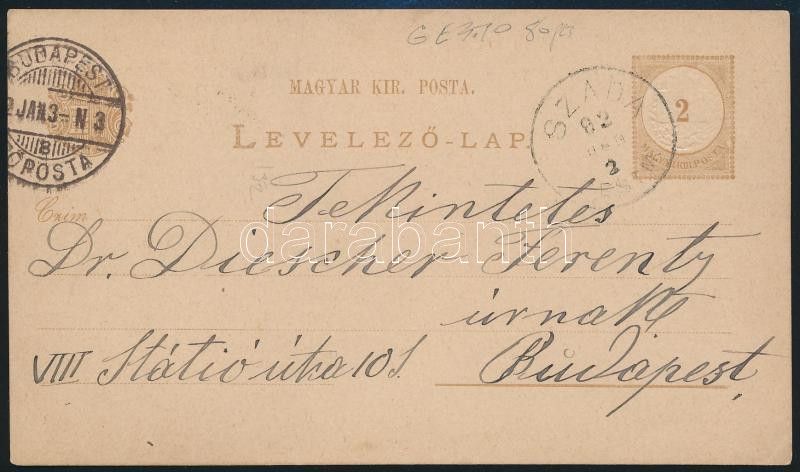 BUDAPEST
JAN 3 - N 3
B
FŐPOSTA
MAGYAR KIR. POSTA.
LEVELEZŐ-LAP
SZADA
82
JAN
2
2
MAGY. KIR. POSTA
Czim
Tekintetes
Dr. Diescher Ferentz
úrnak
VIII Státió útza 10 s.
Budapest,
darabanth